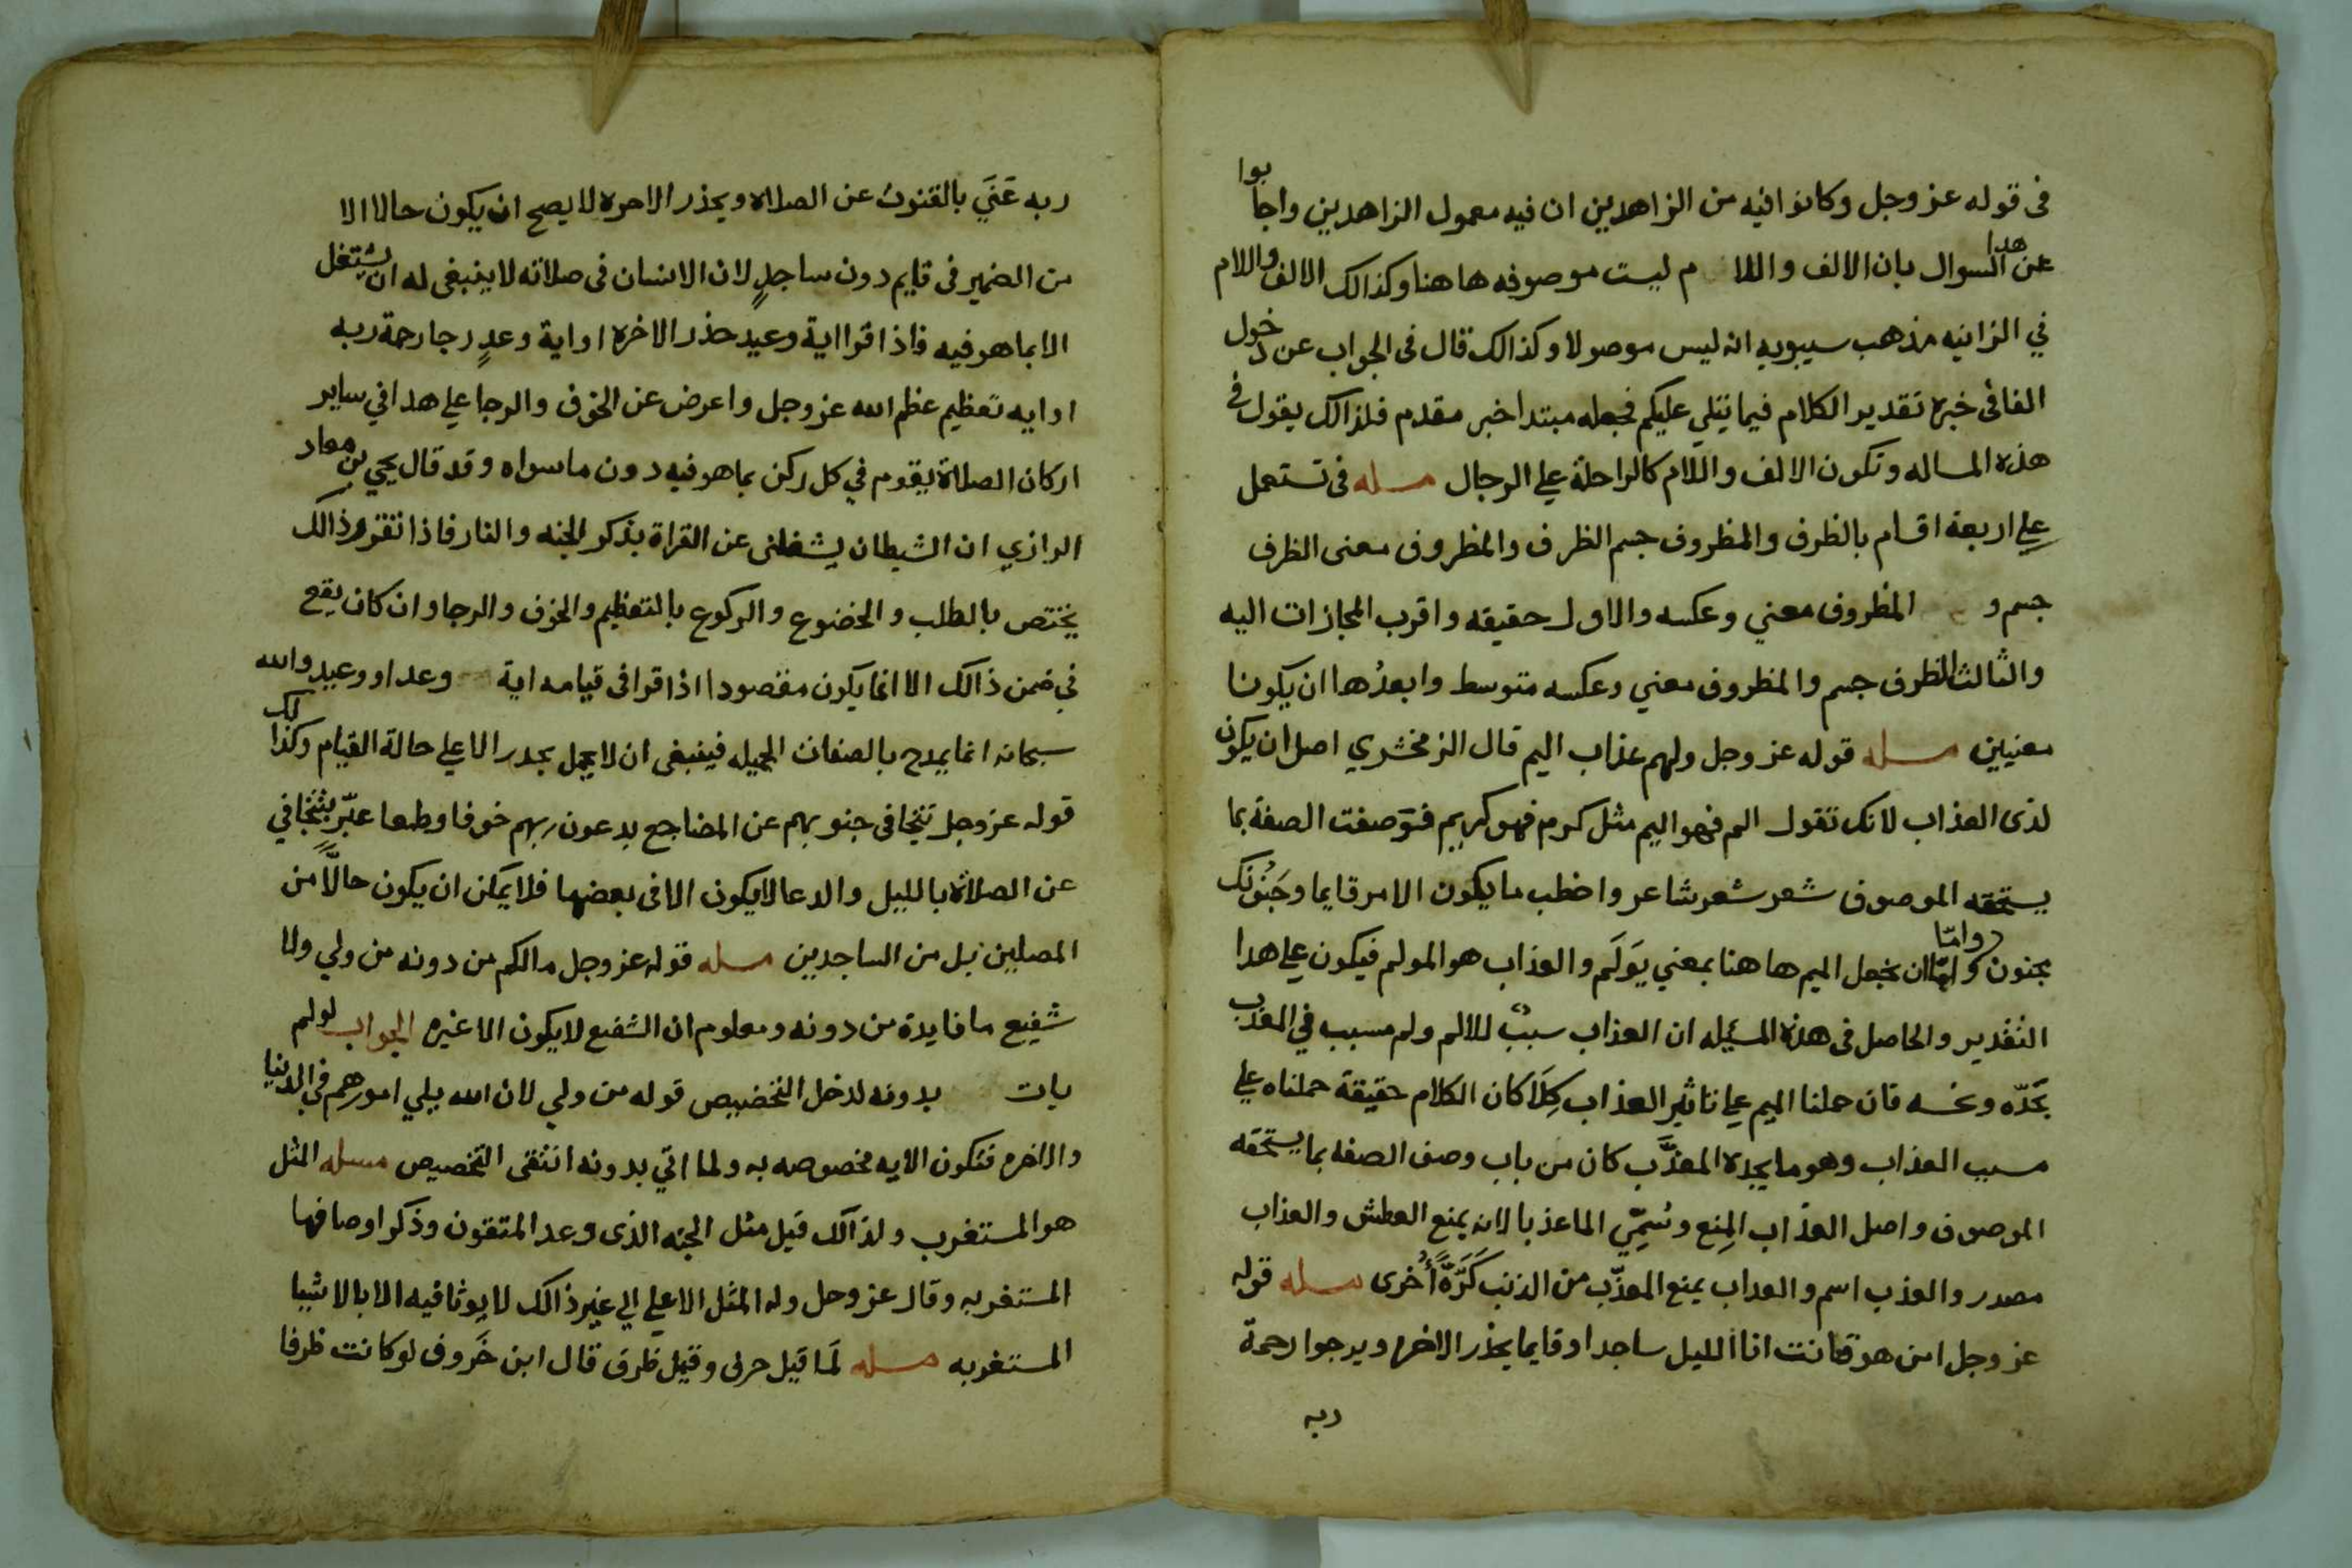 فى قوله عز وجل وكانوا فيه من الزاهدين ان فيه معمول الزاهدين واجابوا
عن هدا السوال بان الالف واللا م ليست موصوفه هاهنا وكذالك الالف واللام
في الزانيه مذهب سيبويه انه ليس موصولا وكذالك قال فى الجواب عن دخول
الفا فى خبره تقدير الكلام فيما يتلي عليكم فجعله مبتدا خبر مقدم فلذالك يقول فى
هذه المساله وتكون الالف واللام كالراحلة علي الرجال مسله فى تستعمل
علي اربعة اقسام بالظرف والمظروف جسم الظرف والمظروف معنى الظرف
جسم و المظروف معني وعكسه والاول حقيقه واقرب المجازات اليه
والثالث الظرف جسم والمظروف معني وعكسه متوسط وابعدُها ان يكونا
معنيين مسله قوله عز وجل ولهم عذاب اليم قال الزمخشري اصل ان يكون
لذى العذاب لانك تقول الم فهو اليم مثل كرم فهو كريم فتوَصفت الصفة بما
يستحقه الموصوف شعر شعر شاعر واخطب ما يكون الامر قايما وجَنُونك
مجنون واما واما ان نجعل اليم هاهنا بمعني يَوَلَم والعذاب هو المولم فيكون علي هدا
التقدير والحاصل فى هذه المسيله ان العذاب سببٌ للالم ولم مسبب في المعذب
يجَدّه ونحسه فان حملنا اليم علي تاثير العذاب كلَا كان الكلام حقيقة حملناه علي
مسبب العذاب وهو ما يجده المعذَّب كان من باب وصف الصفه بما يستحقه
الموصوف واصل العذاب المِنع وسُمِّي الما عذبا لانه يمنع العطش والعذاب
مصدر والعذب اسم والعداب يمنع المعذّب من الذنب كَرَّةً اُخرى مسله قوله
عز وجل امن هو قانت انا الليل ساجدا وقايما يحذر الاخره ويرجوا رحمة
ربه
ربه عَنَي بالقنوت عن الصلاه ويحذر الاحره لا يصح ان يكون حالا الا
من الضمير فى قايم دون ساجدٍ لان الانسان فى صلاته لا ينبغى له ان يشتغل
الا بما هو فيه فاذا قرا اية وعيد حذر الاخره او اية وعدٍ رجا رحمة ربه
او ايه تعظيم عظم الله عز وجل واعرض عن الخوف والرجا علي هدا في ساير
اركان الصلاة يقوم في كل ركن بما هو فيه دون ما سواه وقد قال يحيي بن معاد
الرازي ان الشيطان يشغلنى عن القراة بذكر الجنه والنار فاذا تقرر ذالك
يختص بالطلب والخضوع والركوع بالتعظيم والخوف والرجا وان كان يقع
في ضمن ذالك الا انما يكون مقصودا اذا قرا فى قيامه اية وعد او وعيد والله
سبحانه انما يمدح بالصفات الجميله فينبغى ان لا يحمل يحدر الا علي حالة القيام وكذالك
قوله عز وجل تتجافى جنوبهم عن المضاجع يدعون ربهم خوفا وطمعا عبّر بتتجافي
عن الصلاة بالليل والدعا لا يكون الا فى بعضها فلا يمَكن ان يكون حالًا من
المصلين بل من الساجدين مسله قوله عز وجل مالكم من دونه من ولي ولا
شفيع ما فايدة من دونه ومعلوم ان الشفيع لا يكون الا غيره الجواب لو لم
يات بدونه لدخل التخصيص قوله من ولي لان الله يلي امورهم في الدنيا
والاخره فتكون الايه مخصوصه به ولما اتي بدونه انتفى التخصيص مسله المثل
هو المستغرب ولذالك قيل مثل الجنه الذى وعد المتقون وذَكر اوصافها
المستغربه وقال عز وجل وله المثل الاعلي الي غير ذالك لا يوتا فيه الا بالاشيا
المستغربه مسله لَما قيل حرف وقيل ظرف قال ابن خَروف لو كانت ظرفا